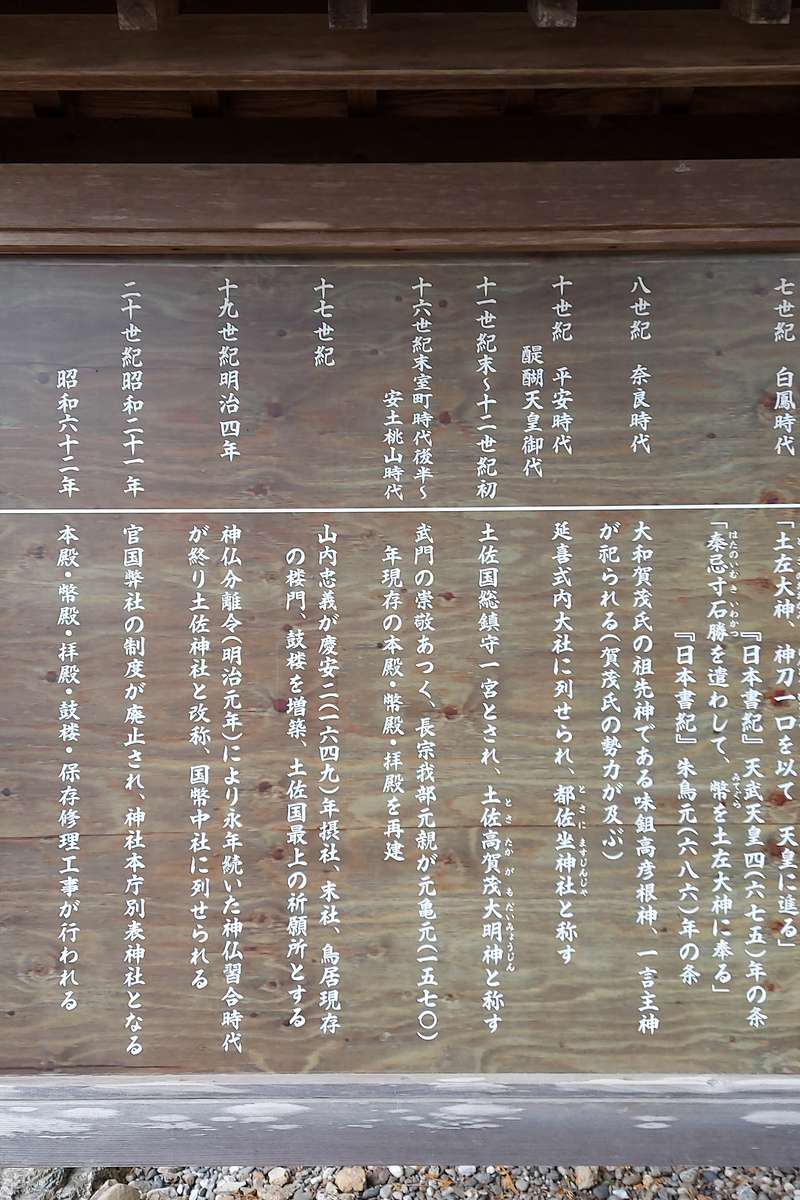 七世紀 白鳳時代
「土左大神、神刀一口を以て 天皇に進る」
『日本書紀』 天武天皇四(六七五)年の条
「秦忌寸石勝を遣わして、幣を土左大神に奉る」
はたのいむきいわかつ
みてぐら
『日本書紀』 朱鳥元(六八六)年の条
八世紀 奈良時代
大和賀茂氏の祖先神である味鉏高彦根神、一言主神
が祀られる(賀茂氏の勢力が及ぶ)
十世紀 平安時代
醍醐天皇御代
延喜式内大社に列せられ、都佐坐神社と称す
とさにますじんじゃ
十一世紀末~十二世紀初
土佐国総鎮守一宮とされ、土佐高賀茂大明神と称す
とさ たかがもだいみょうじん
十六世紀末室町時代後半~
安土桃山時代
武門の崇敬あつく、長宗我部元親が元亀元(一五七〇)
年現存の本殿・幣殿・拝殿を再建
十七世紀
山内忠義が慶安二(一六四九)年摂社、末社、鳥居現存
の楼門、鼓楼を増築、土佐国最上の祈願所とする
十九世紀明治四年
神仏分離令(明治元年)により永年続いた神仏習合時代
が終り土佐神社と改称、国幣中社に列せられる
二十世紀昭和二十一年
官国幣社の制度が廃止され、神社本庁別表神社となる
昭和六十二年
本殿・幣殿・拝殿・鼓楼・保存修理工事が行われる